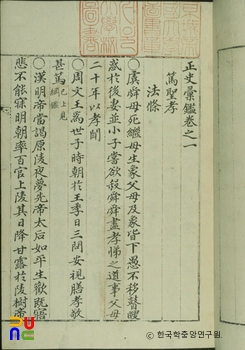 正史彙鑑卷之一
篤聖孝
法條
○虞舜母死繼母生象父母及象皆下愚不移瞽瞍
惑於後妻並小子嘗欲殺舜舜盡孝悌之道事父母
二十年以孝聞
○周文王爲世子時朝於王季日三問安視膳孝敬
甚篤 已上見綱鑑
○漢明帝當謁原陵夜夢先帝太后如平生歡旣寤
悲不能寐明朝率百官上陵其日降甘露於陵樹帝
한국학중앙연구원